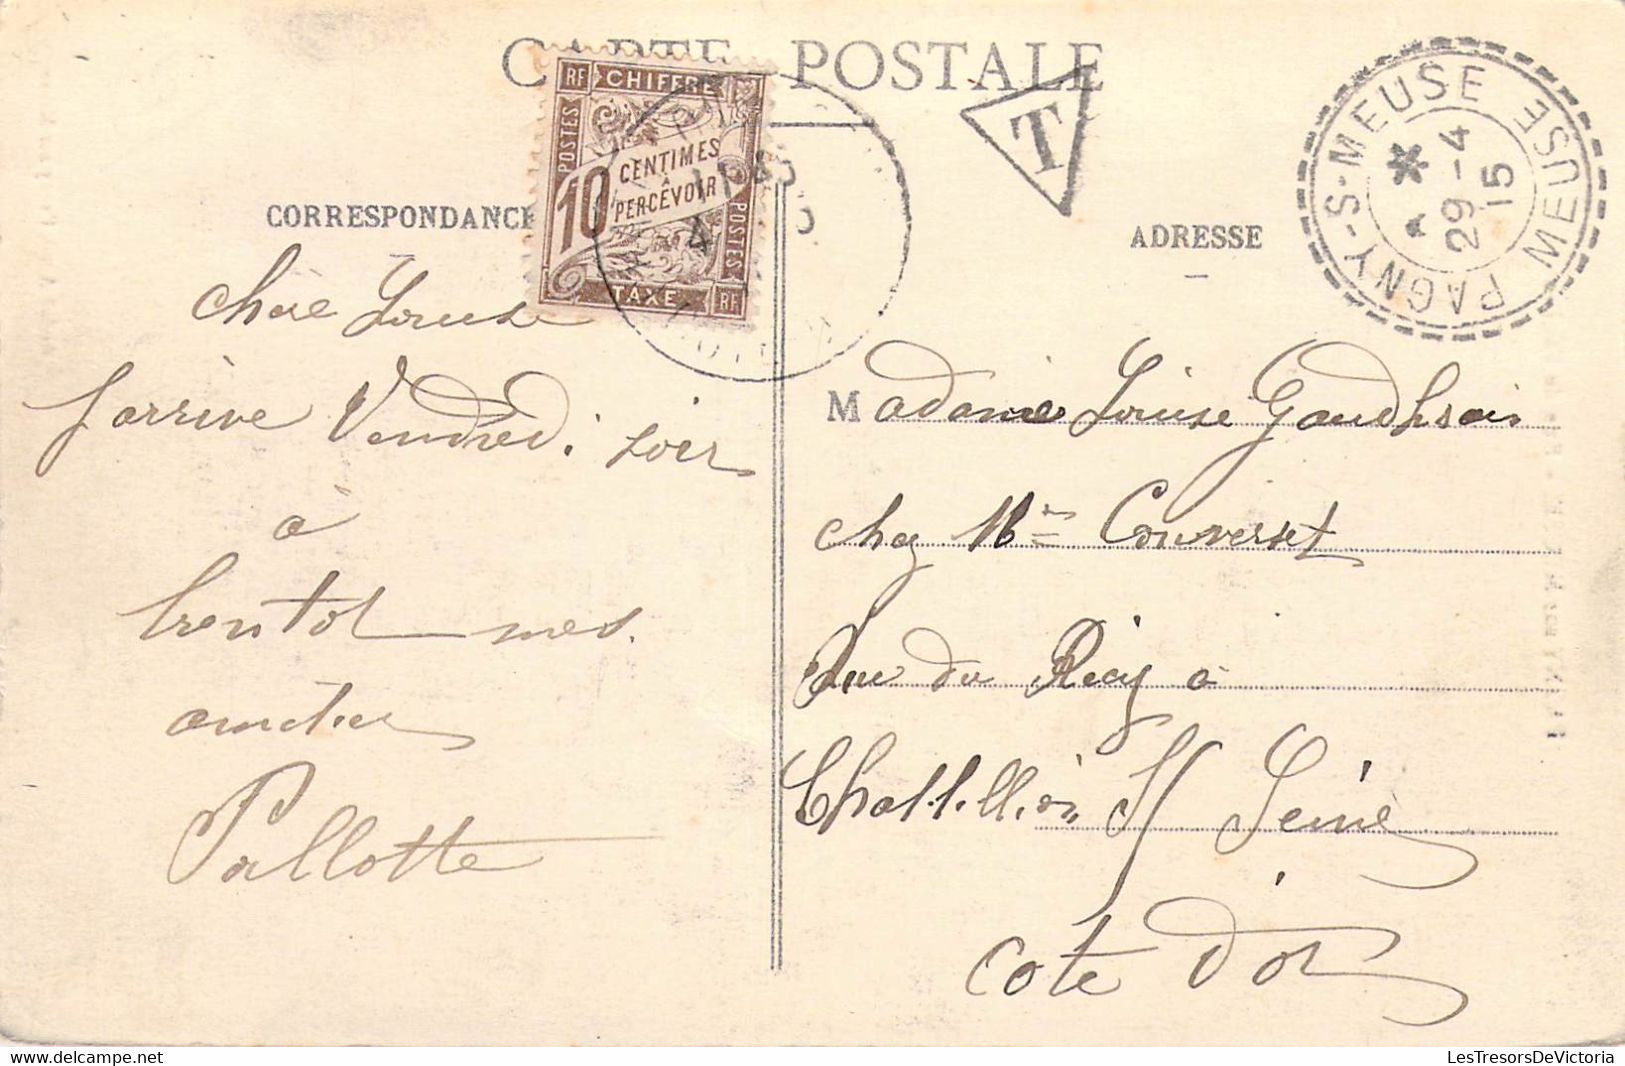 CARTE POSTALE
RF CHIFFRE
POSTES
10 CENTIMES
À
PERCEVOIR
POSTES
TAXE RF
T
PAGNY-S-MEUSE MEUSE
29 -4
15
CORRESPONDANCE
ADRESSE
chère Louise
j arrive Vendredi soir
à
bientot mes
amitiés
Pallotte
Madame Louise Gaudhrois
chez Me Converset
Rue du Recy à
Chatillion S/ Seine
Cote d'or
LesTresorsDeVictoria
delcampe.net